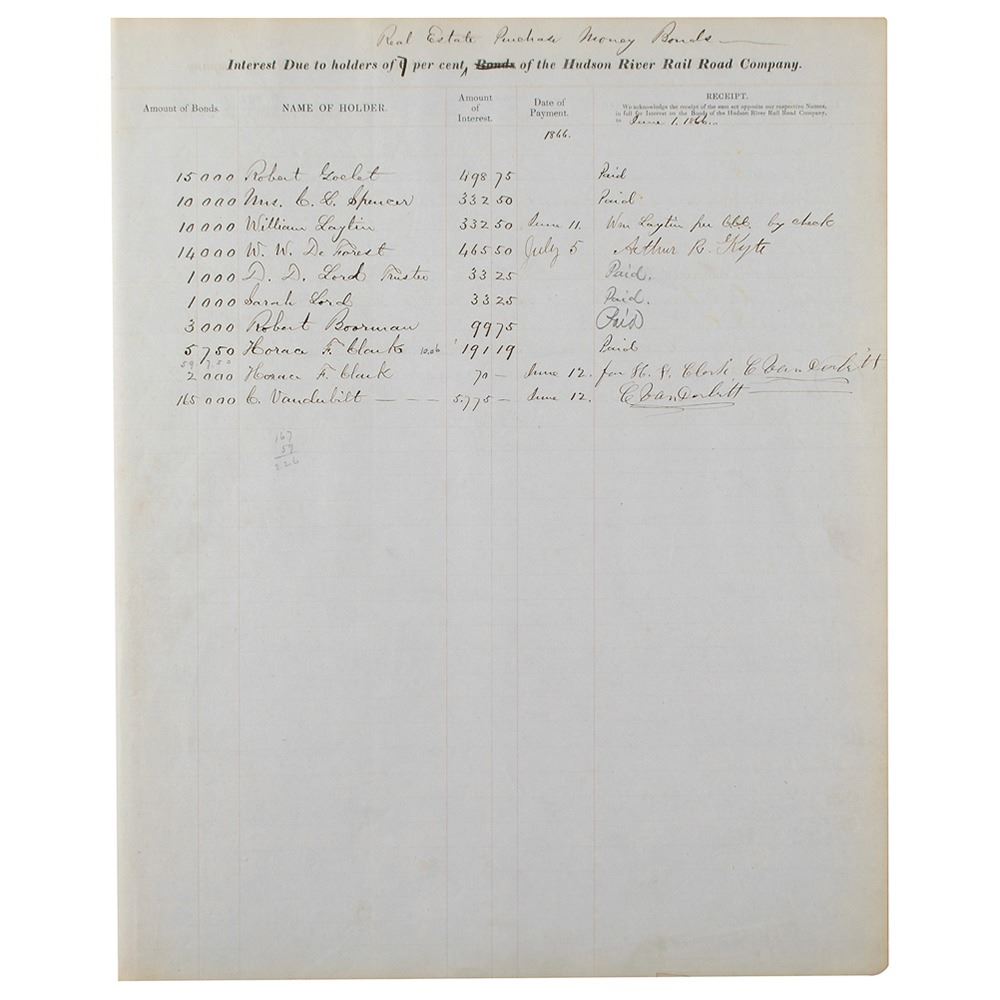 Real Estate Purchase Money Bonds
Interest Due to holders of 7 per cent, Bonds of the Hudson River Rail Road Company.
Amount of Bonds. NAME OF HOLDER. Amount of Interest. Date of Payment. RECEIPT.
We acknowledge the receipt of the sum set opposite our respective Names,
in full for Interest on the Bonds of the Hudson River Rail Road Company,
to June 1. 1866.
1866.
15 000 Robert Goelet 498 75 Paid
10 000 Mrs. C. L. Spencer 332 50 Paid
10 000 William Laytin 332 50 June 11. Wm Laytin per by check
14 000 W. W. De Forest 465 50 July 5 Arthur R. Kyte
1 000 D. D. Lord Trustee 33 25 Paid.
1 000 Sarah Lord 33 25 Paid.
3 000 Robert Boorman 99 75 Paid
5 750 Horace F. Clark 10.06 191 19 Paid
2 000 Horace F. Clark 70 — June 12. for H. F. Clark C VanDerbilt
165 000 C. Vanderbilt — — — 5.775 — June 12. C VanDerbilt
167
59
226